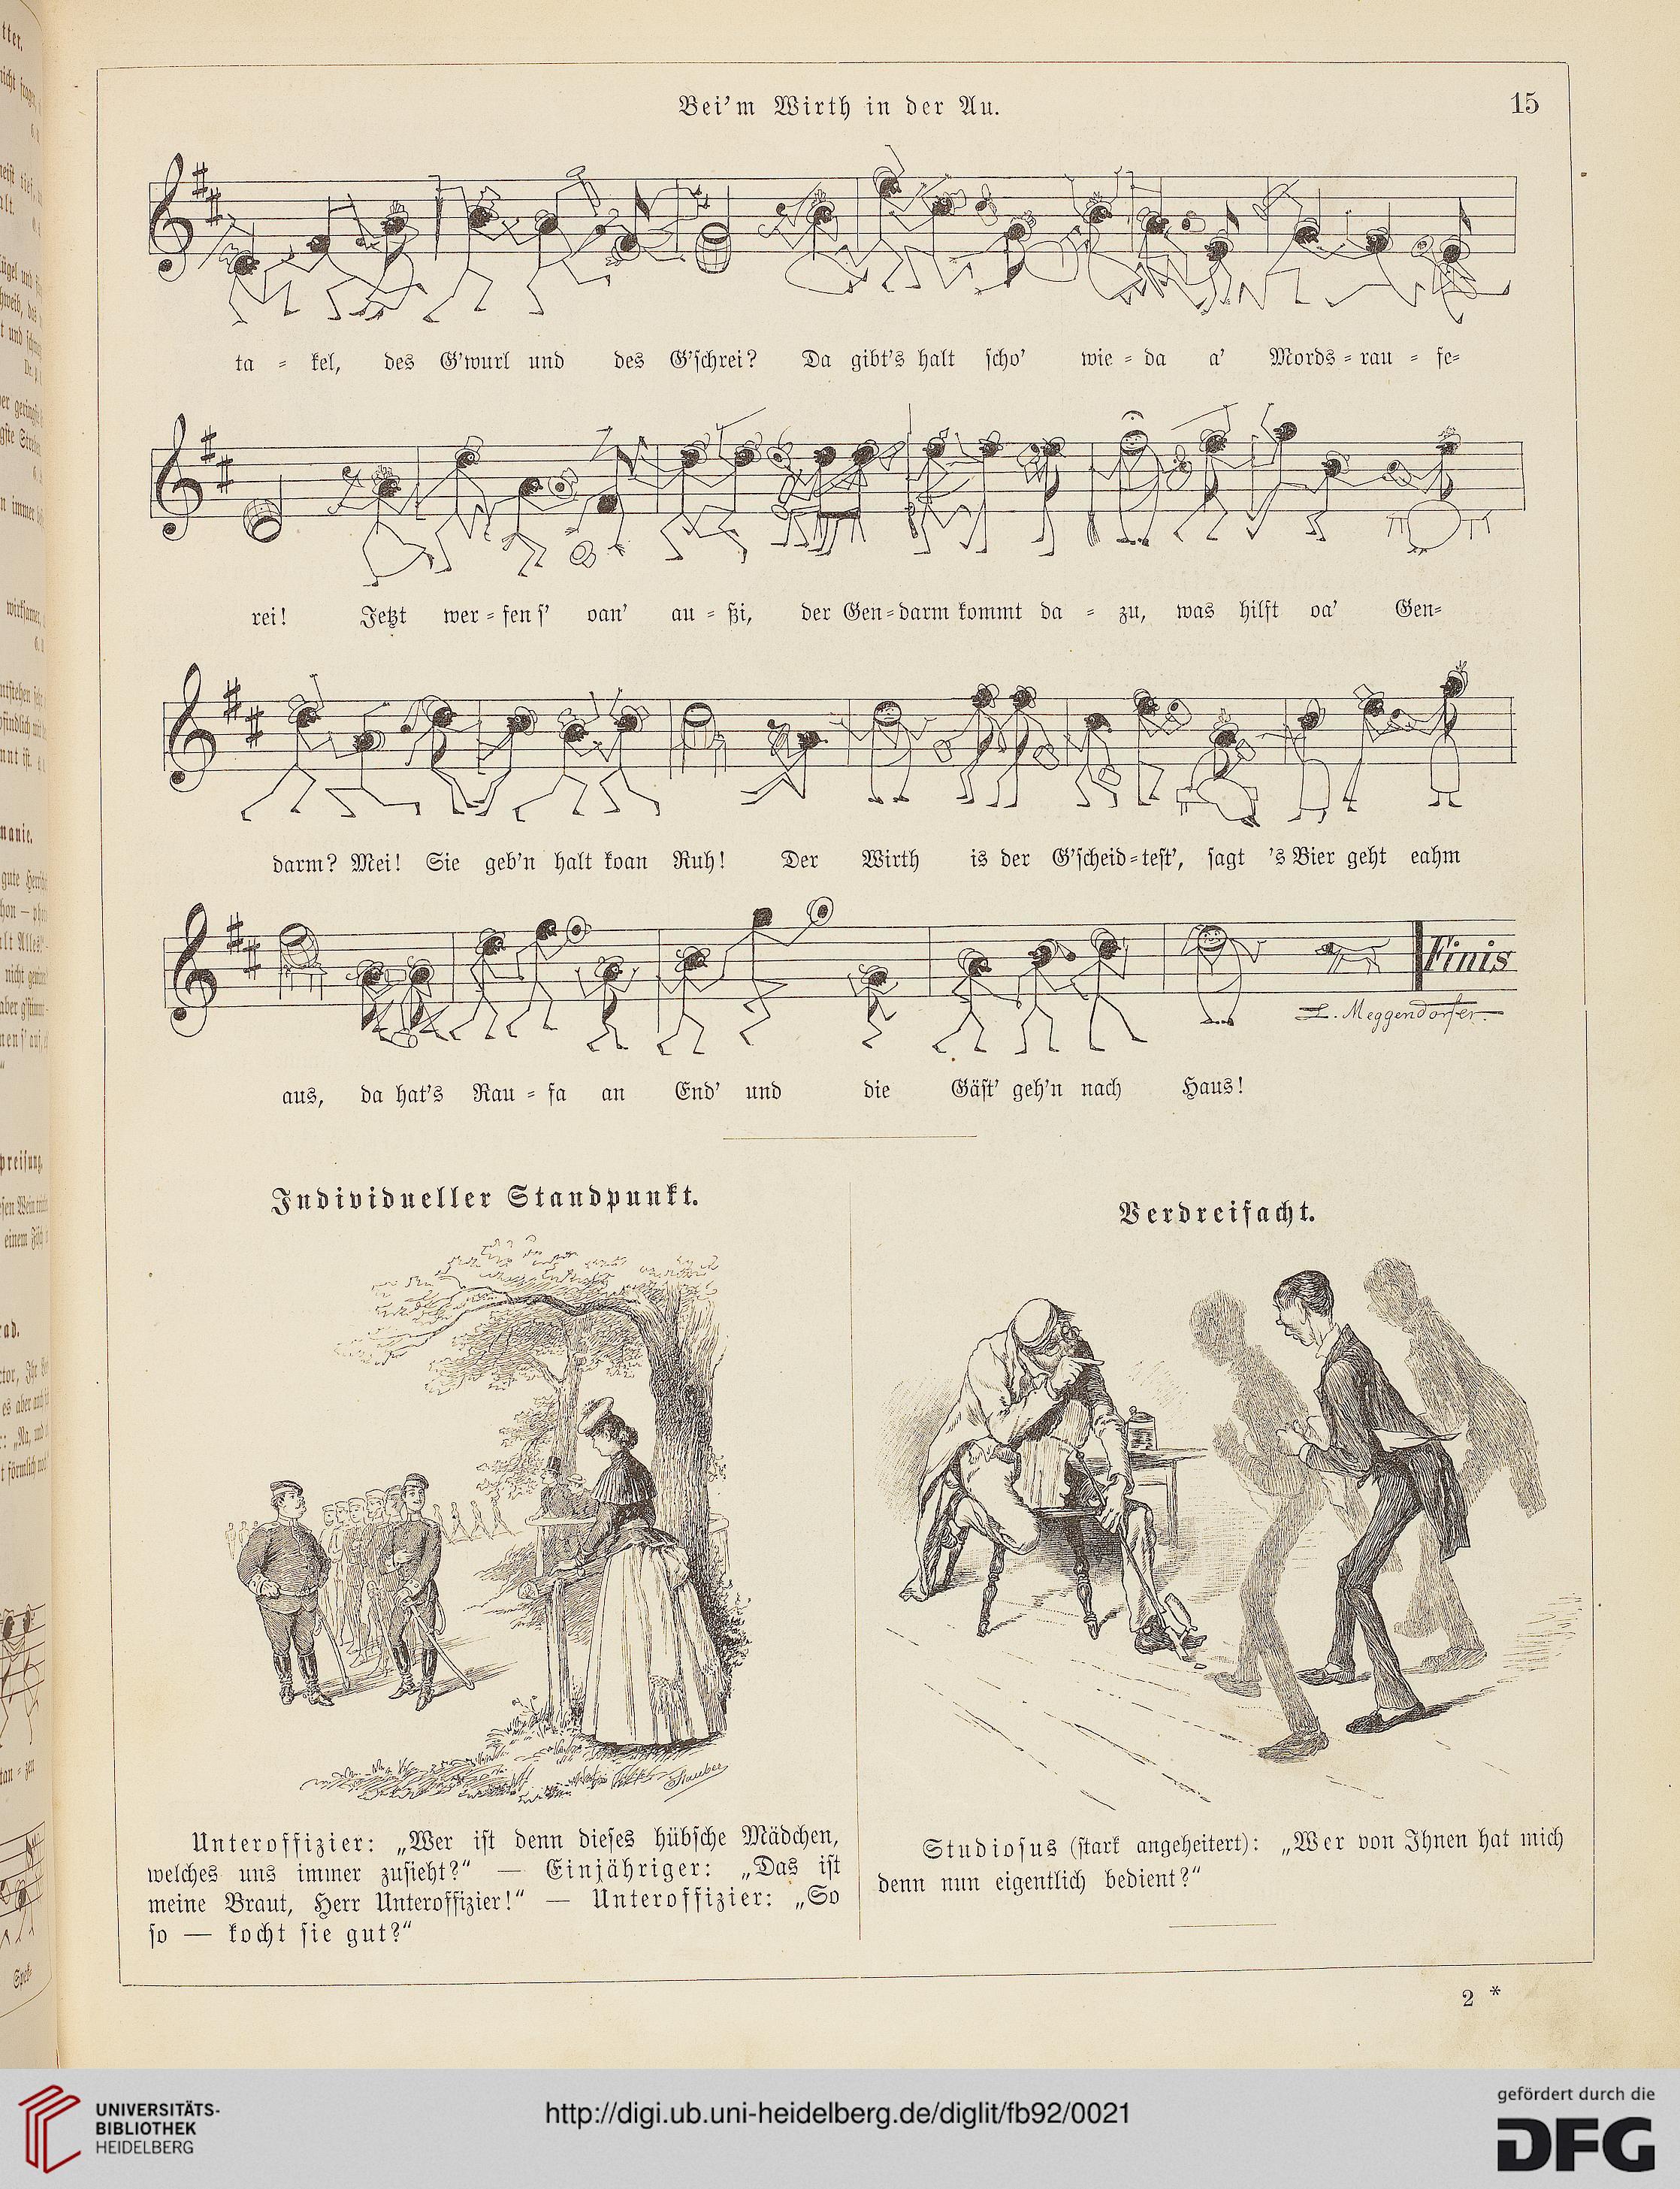 Bei'm Wirth in der Au.
15
ta - kel, des G'wurl und des G'schrei? Da gibt's halt scho' wie - da a' Mords - rau - fe-
rei! Jetzt wer - fen s' oan' au - ßi, der Gen - darm kommt da - zu, was hilft oa' Gen-
darm? Mei! Sie geb'n halt koan Ruh! Der Wirth is der G'scheid - test', sagt 's Bier geht eahm
Finis
L. Meggendorfer.
aus, da hat's Rau - fa an End' und die Gäst' geh'n nach Haus!
Individueller Standpunkt.
Stauber
Unteroffizier: „Wer ist denn dieses hübsche Mädchen,
welches uns immer zusieht?“ — Einjähriger: „Das ist
meine Braut, Herr Unteroffizier!“ — Unteroffizier: „So
so — kocht sie gut?“
Verdreifacht.
Studiosus (stark angeheitert): „Wer von Ihnen hat mich
denn nun eigentlich bedient?“
2 *
UNIVERSITÄTS-
BIBLIOTHEK
HEIDELBERG
http://digi.ub.uni-heidelberg.de/diglit/fb92/0021
gefördert durch die
DFG